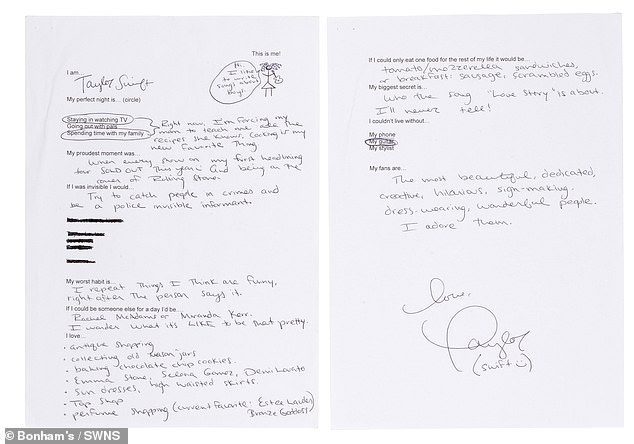 This is me!
I am...
Taylor Swift
Hi
I like to write songs about boys!
My perfect night is... (circle)
Staying in watching TV
Going out with pals
Spending time with my family
Right now, I'm forcing my
mom to teach me all the
recipes she knows. Cooking is my
new Favorite Thing
My proudest moment was...
When every show on my first headlining
tour SOLD OUT this year. And being on the
cover of Rolling Stone.
If I was invisible I would...
Try to catch people in crimes and
be a police invisible informant.
My worst habit is...
I repeat things I think are funny,
right after the person says it.
If I could be someone else for a day I'd be...
Rachel McAdams or Miranda Kerr.
I wonder what it's LIKE to be that pretty.
I love...
• antique shopping
• collecting old mason jars
• baking chocolate chip cookies.
• Emma Stone, Selena Gomez, Demi Lovato
• Sun dresses, high waisted skirts.
• Top Shop
• perfume shopping (current favorite: Estee Lauder
Bronze Goddess)
If I could only eat one food for the rest of my life it would be...
tomato/mozzerella sandwiches,
or breakfast: sausage, scrambled eggs.
My biggest secret is...
Who the song "Love Story" is about.
I'll never tell!
I couldn't live without...
My phone
My guitar
My stylist
My fans are...
The most beautiful, dedicated,
creative, hilarious, sign-making,
dress-wearing, wonderful people.
I adore them.
love,
Taylor
(swift)
© Bonham's / SWNS